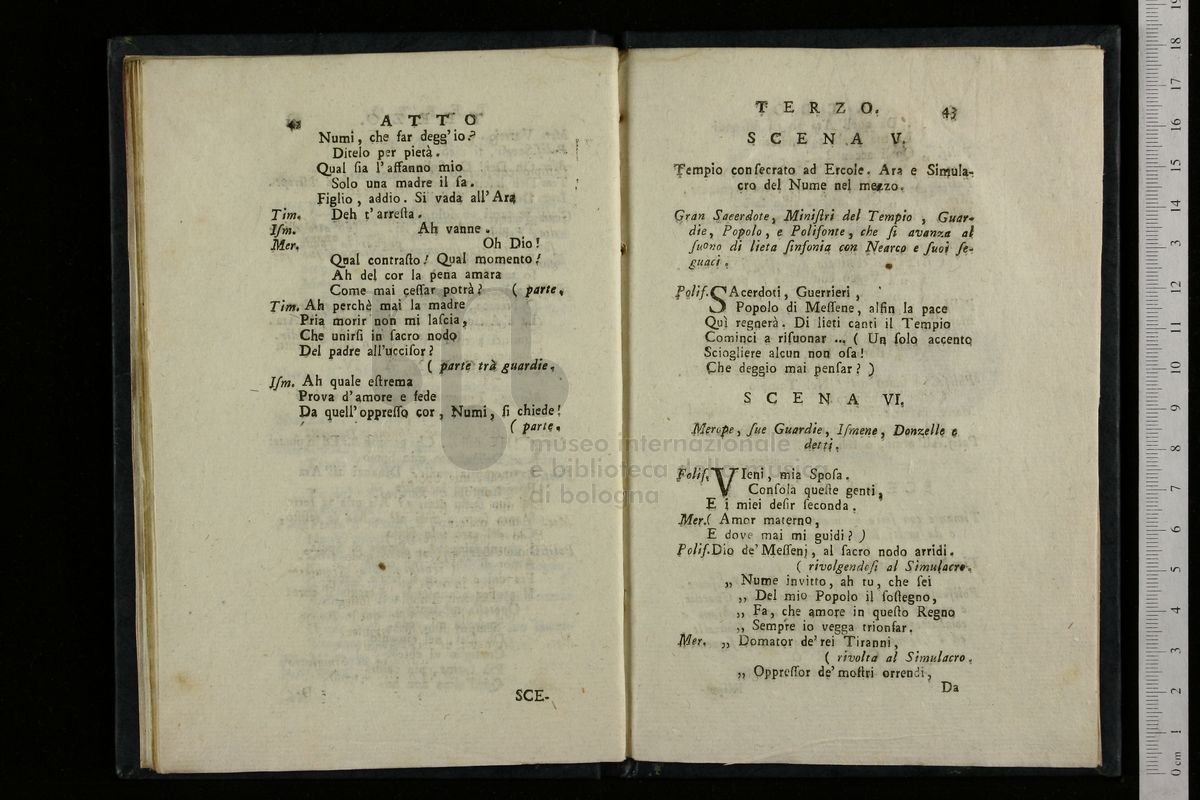 42 ATTO
Numi, che far degg'io?
Ditelo per pietà.
Qual ſia l'affanno mio
Solo una madre il ſa.
Figlio, addio. Si vada all'Ara
Tim. Deh t'arreſta.
Iſm. Ah vanne.
Mer. Oh Dio!
Qual contraſto! Qual momento!
Ah del cor la pena amara
Come mai ceſſar potrà? ( parte.
Tim. Ah perchè mai la madre
Pria morir non mi laſcia,
Che unirſi in ſacro nodo
Del padre all'ucciſor?
( parte trà guardie.
Iſm. Ah quale eſtrema
Prova d'amore e fede
Da quell'oppreſſo cor, Numi, ſi chiede!
( parte.
SCE-
TERZO. 43
SCENA V.
Tempio conſecrato ad Ercole. Ara e Simula-
cro del Nume nel mezzo.
Gran Sacerdote, Miniſtri del Tempio, Guar-
die, Popolo, e Polifonte, che ſi avanza al
ſuono di lieta ſinfonia con Nearco e ſuoi ſe-
guaci.
Polif. SAcerdoti, Guerrieri,
Popolo di Meſſene, alfin la pace
Quì regnerà. Di lieti canti il Tempio
Cominci a riſuonar ... ( Un ſolo accento
Sciogliere alcun non oſa!
Che deggio mai penſar? )
SCENA VI.
Merope, ſue Guardie, Iſmene, Donzelle e
detti.
Polif. VIeni, mia Spoſa.
Conſola queſte genti,
E i miei deſir ſeconda.
Mer. ( Amor materno,
E dove mai mi guidi? )
Polif. Dio de' Meſſenj, al ſacro nodo arridi.
( rivolgendoſi al Simulacro.
„ Nume invitto, ah tu, che ſei
„ Del mio Popolo il ſoſtegno,
„ Fa, che amore in queſto Regno
„ Sempre io vegga trionfar.
Mer. „ Domator de' rei Tiranni,
( rivolta al Simulacro.
„ Oppreſſor de' moſtri orrendi,
Da
museo internazionale
e biblioteca della musica
di bologna
0 cm 1 2 3 4 5 6 7 8 9 10 11 12 13 14 15 16 17 18 19